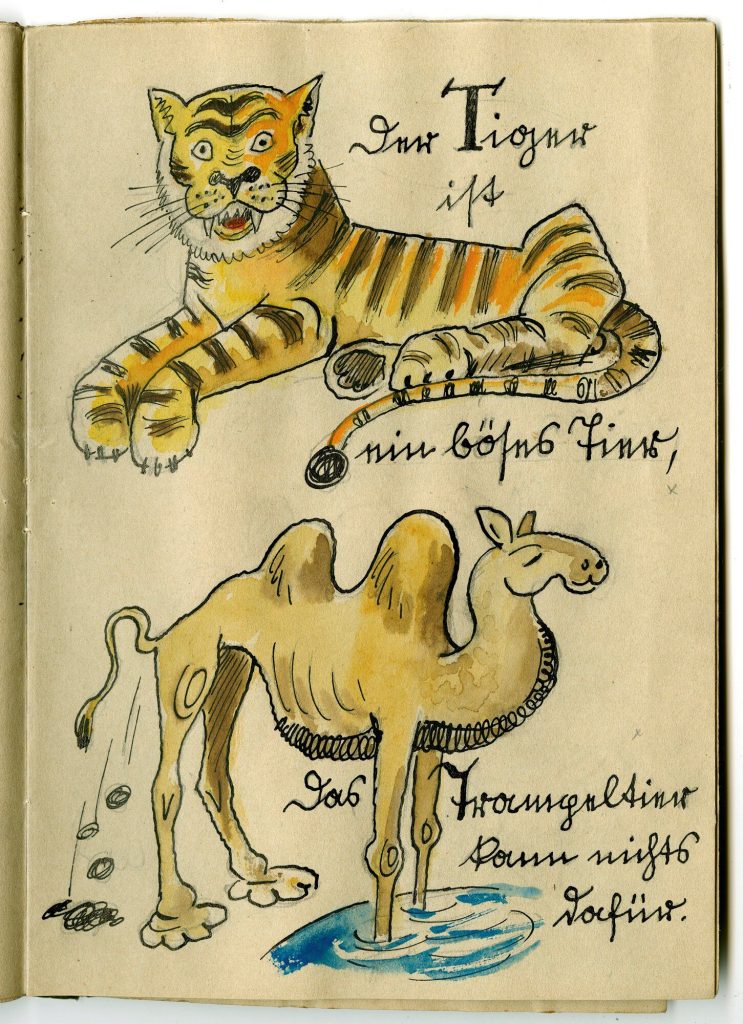 Der Tiger
ist
ein böses Tier,
Das Trampeltier
kann nichts
dafür.